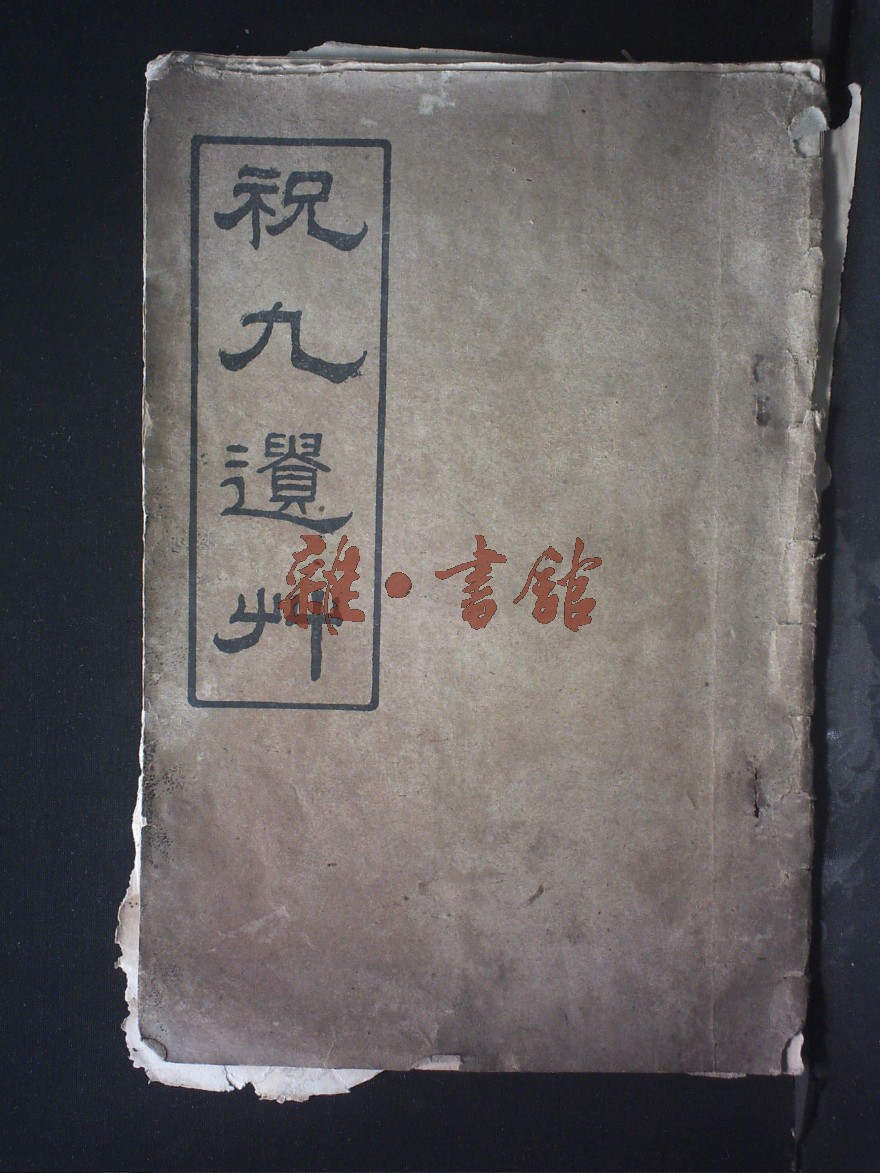 祝九遺艸
雜·書館